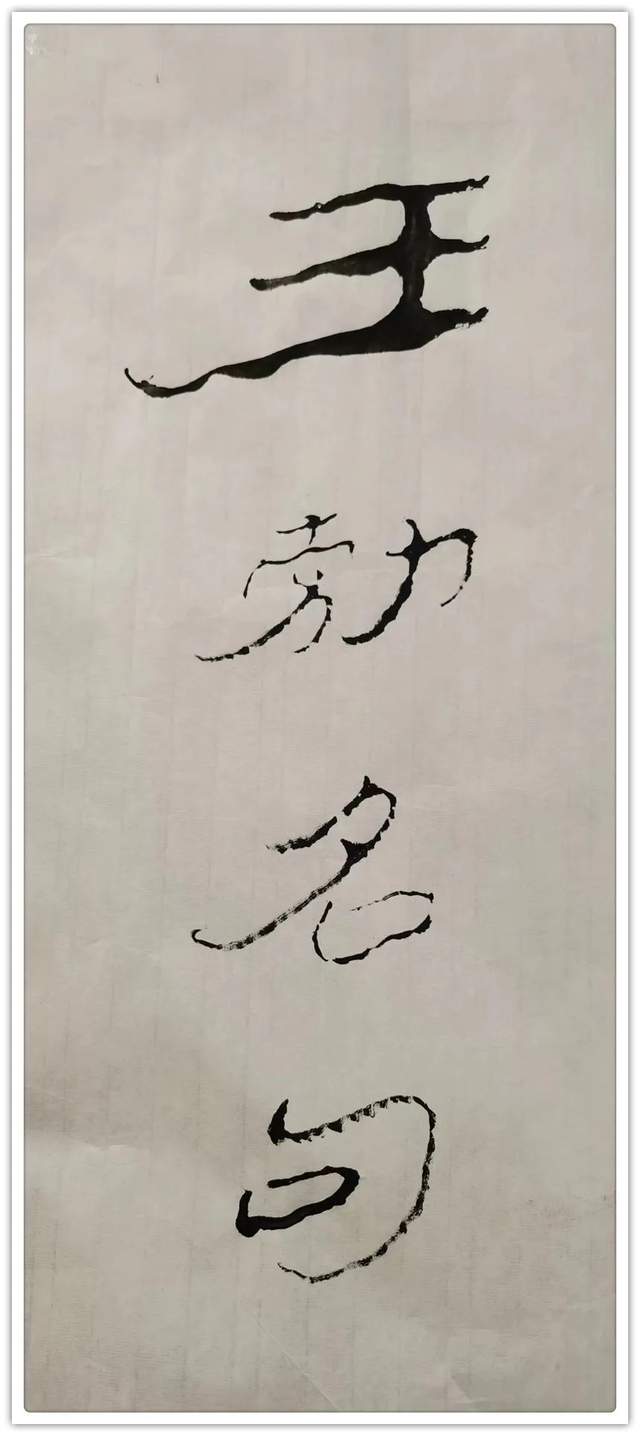 王勃名句